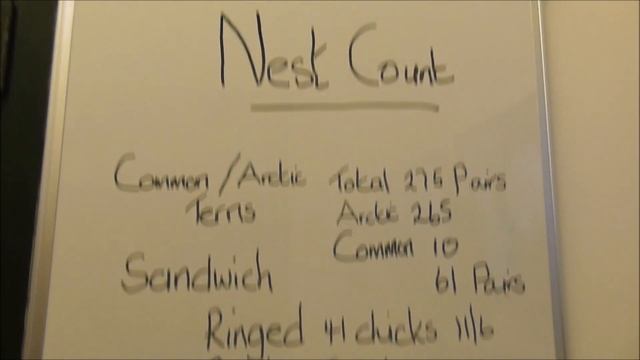 Nest Count
Common/Arctic Total 275 Pairs
Terns Arctic 265
Common 10
Sandwich 61 Pairs
Ringed 41 chicks 11/6